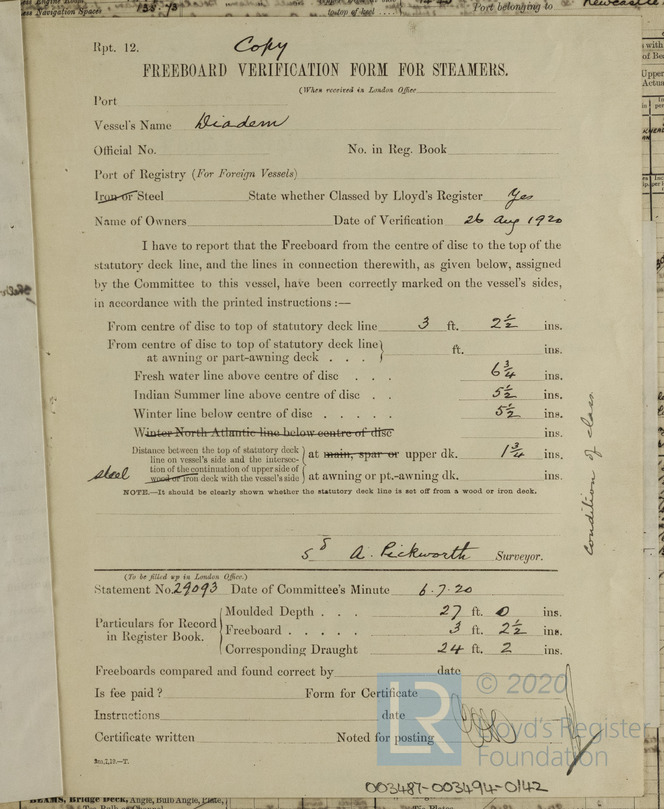 135.73
Port belonging to Newcastle
Rpt. 12. Copy
FREEBOARD VERIFICATION FORM FOR STEAMERS.
(When received in London Office
Port
Vessel's Name Diadem
Official No. No. in Reg. Book
Port of Registry (For Foreign Vessels)
Iron or Steel State whether Classed by Lloyd's Register Yes
Name of Owners Date of Verification 26 Aug 1920
I have to report that the Freeboard from the centre of disc to the top of the
statutory deck line, and the lines in connection therewith, as given below, assigned
by the Committee to this vessel, have been correctly marked on the vessel's sides,
in accordance with the printed instructions :—
From centre of disc to top of statutory deck line 3 ft. 2½ ins.
From centre of disc to top of statutory deck line
at awning or part-awning deck . . . ft. ins.
Fresh water line above centre of disc . . . 6¾ ins.
Indian Summer line above centre of disc . . 5½ ins.
Winter line below centre of disc . . . . . 5½ ins.
Winter North Atlantic line below centre of disc ins.
Distance between the top of statutory deck
line on vessel's side and the intersec-
tion of the continuation of upper side of
steel wood or iron deck with the vessel's side
at main, spar or upper dk. 1¾ ins.
at awning or pt.-awning dk. ins.
NOTE.—It should be clearly shown whether the statutory deck line is set off from a wood or iron deck.
condition of class
sd A. Pickworth Surveyor.
(To be filled up in London Office.)
Statement No. 29093 Date of Committee's Minute 6.7.20
Particulars for Record
in Register Book.
Moulded Depth . . . 27 ft. 0 ins.
Freeboard . . . . . 3 ft. 2½ ins.
Corresponding Draught 24 ft. 2 ins.
Freeboards compared and found correct by date
Is fee paid ? Form for Certificate
Instructions date
Certificate written Noted for posting
LR
© 2020
Lloyd's Register
Foundation
003487-003494-0142
BEAMS, Bridge Deck, Angle, Bulb Angle, Plate,